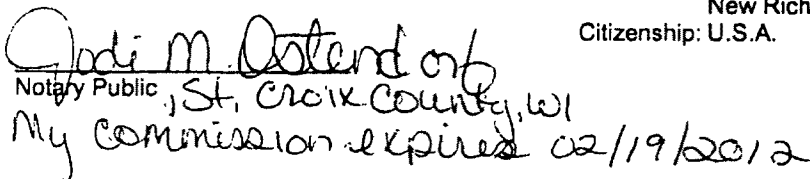 New Rich
Citizenship: U.S.A.
Jodi M. Ostendorf
Notary Public, St. Croix County, WI
My commission expires 02/19/2012